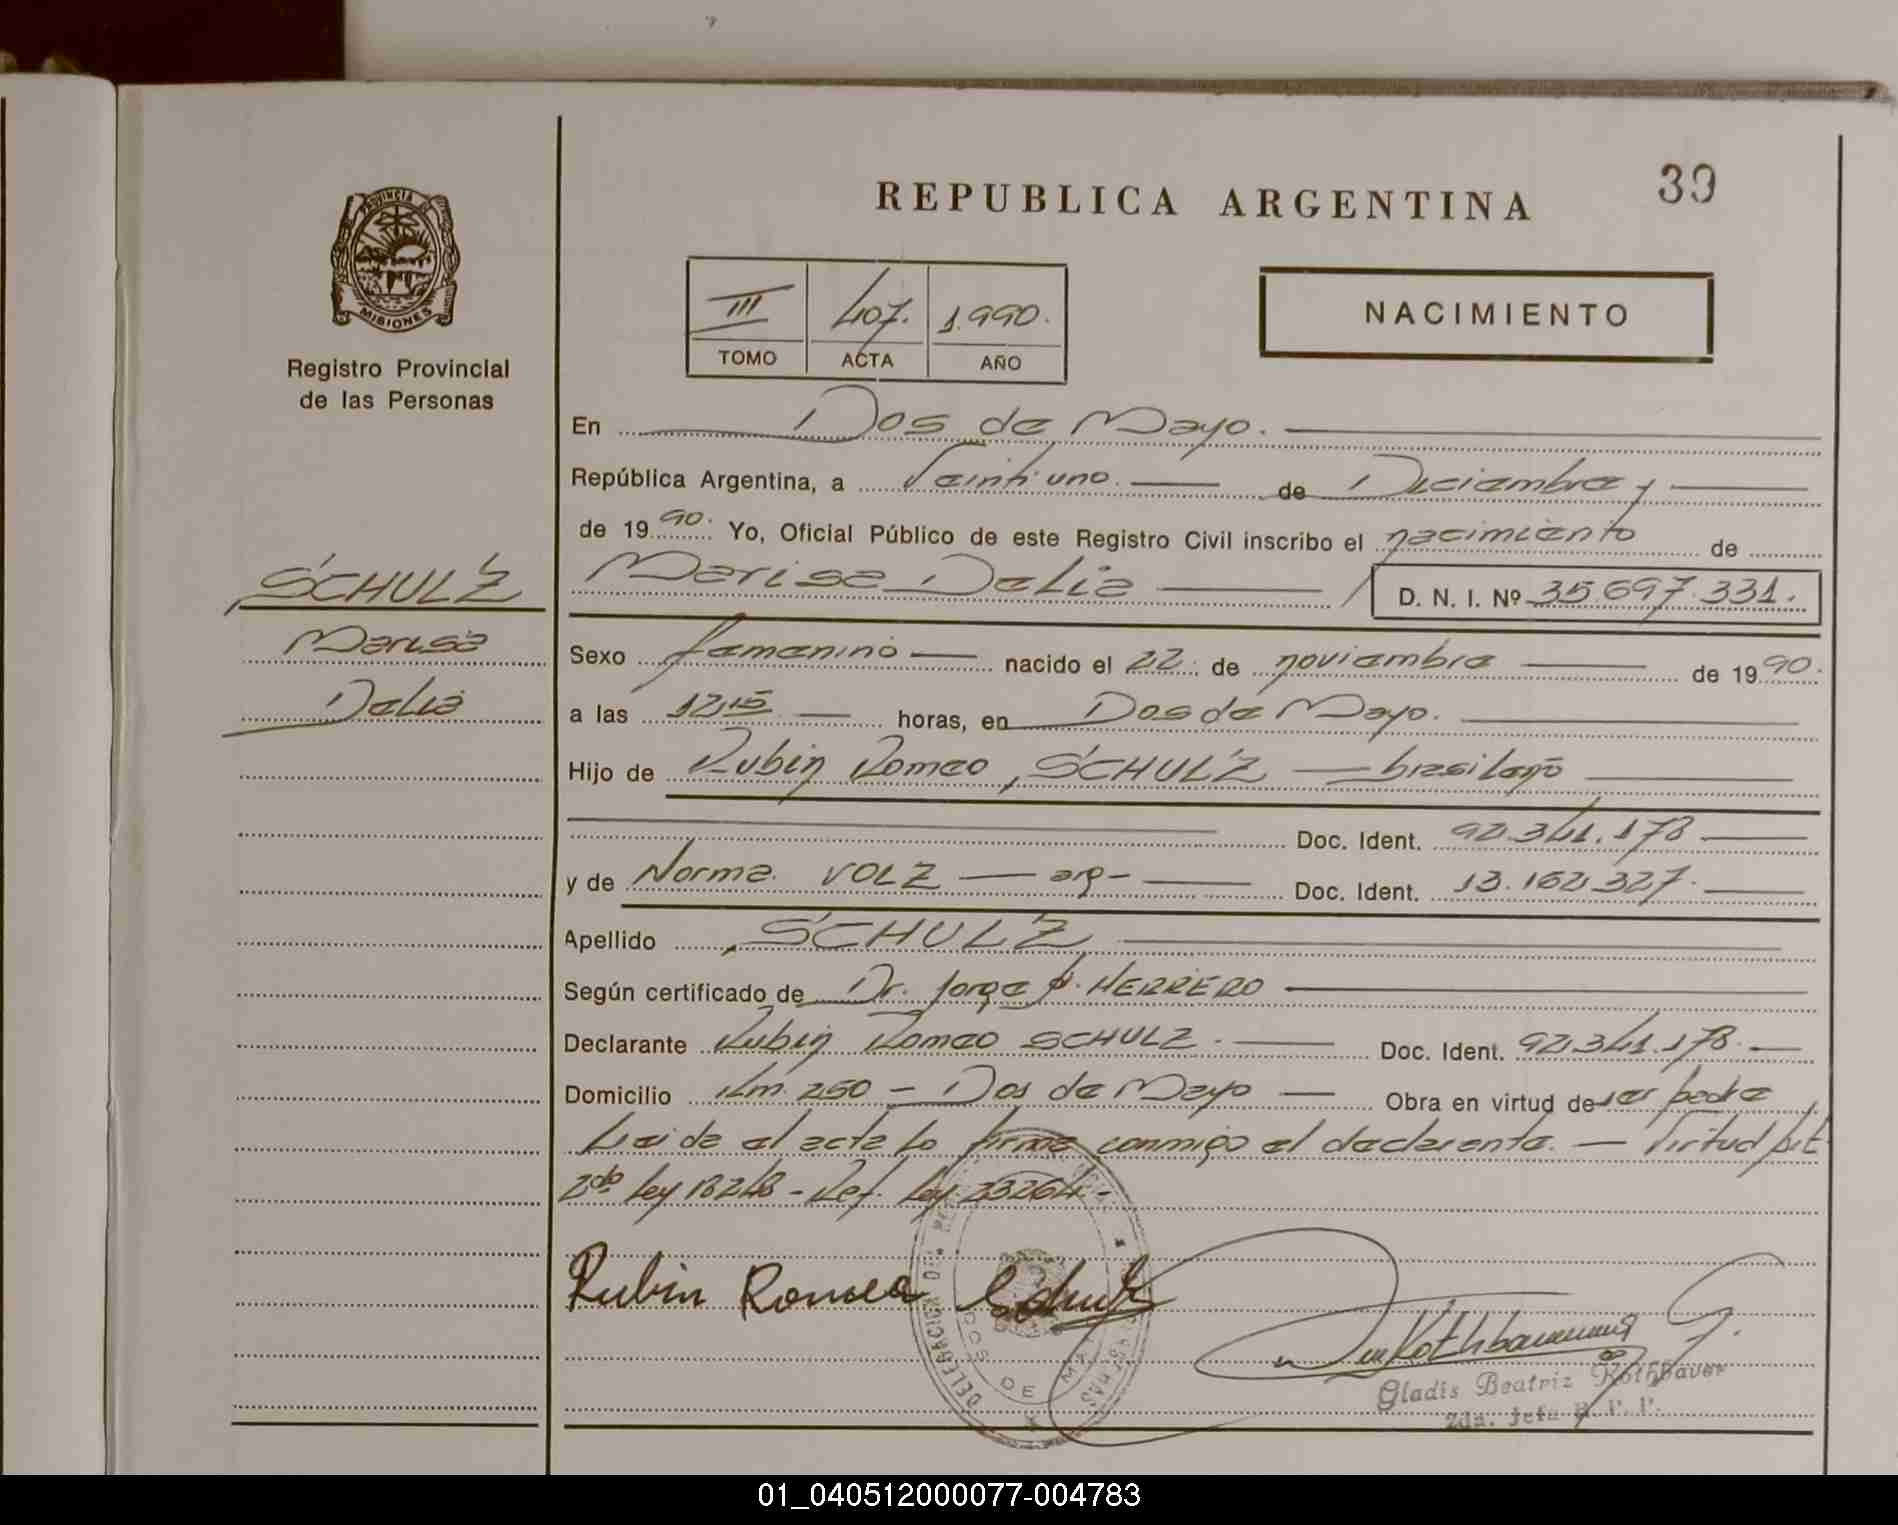 39
REPUBLICA ARGENTINA
PROVINCIA DE
MISIONES
Registro Provincial
de las Personas
III 407. 1.990.
TOMO ACTA AÑO
NACIMIENTO
En Dos de Mayo.
República Argentina, a Veintiuno. de Diciembre
de 1990. Yo, Oficial Público de este Registro Civil inscribo el nacimiento de
SCHULZ
Marisa Delia D. N. I. Nº 35.697.331.
Marisa
Delia
Sexo femenino nacido el 22. de noviembre de 1990.
a las 12,15 horas, en Dos de Mayo.
Hijo de Rubin Romeo SCHULZ brasileño
Doc. Ident. 92.341.178
y de Norma VOLZ arg- Doc. Ident. 13.162.327.
Apellido SCHULZ
Según certificado de Dr. Jorge HERRERO
Declarante Rubin Romeo SCHULZ. Doc. Ident. 92.341.178.
Domicilio Km. 250 - Dos de Mayo Obra en virtud de ser padre
Leida el acta lo firma conmigo el declarante. - Virtud Art
2do ley 18248 - Ref. ley 23264.-
Rubin Romeo Schulz
DELEGACION
DOS DE MAYO
Rothbauer G.
Gladis Beatriz Rothbauer
2da. Jefa R. P. P.
01_040512000077-004783